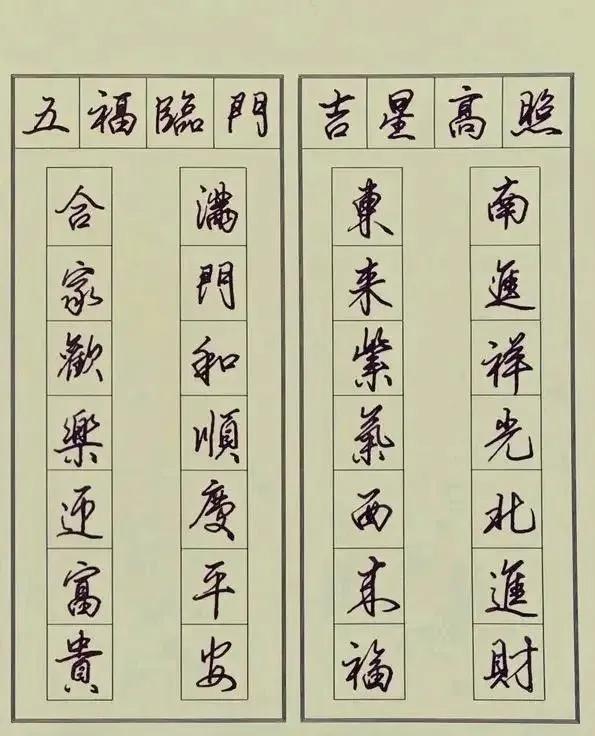 五福臨門
合家歡樂迎富貴
滿門和順慶平安
吉星高照
東来紫氣西来福
南進祥光北進財